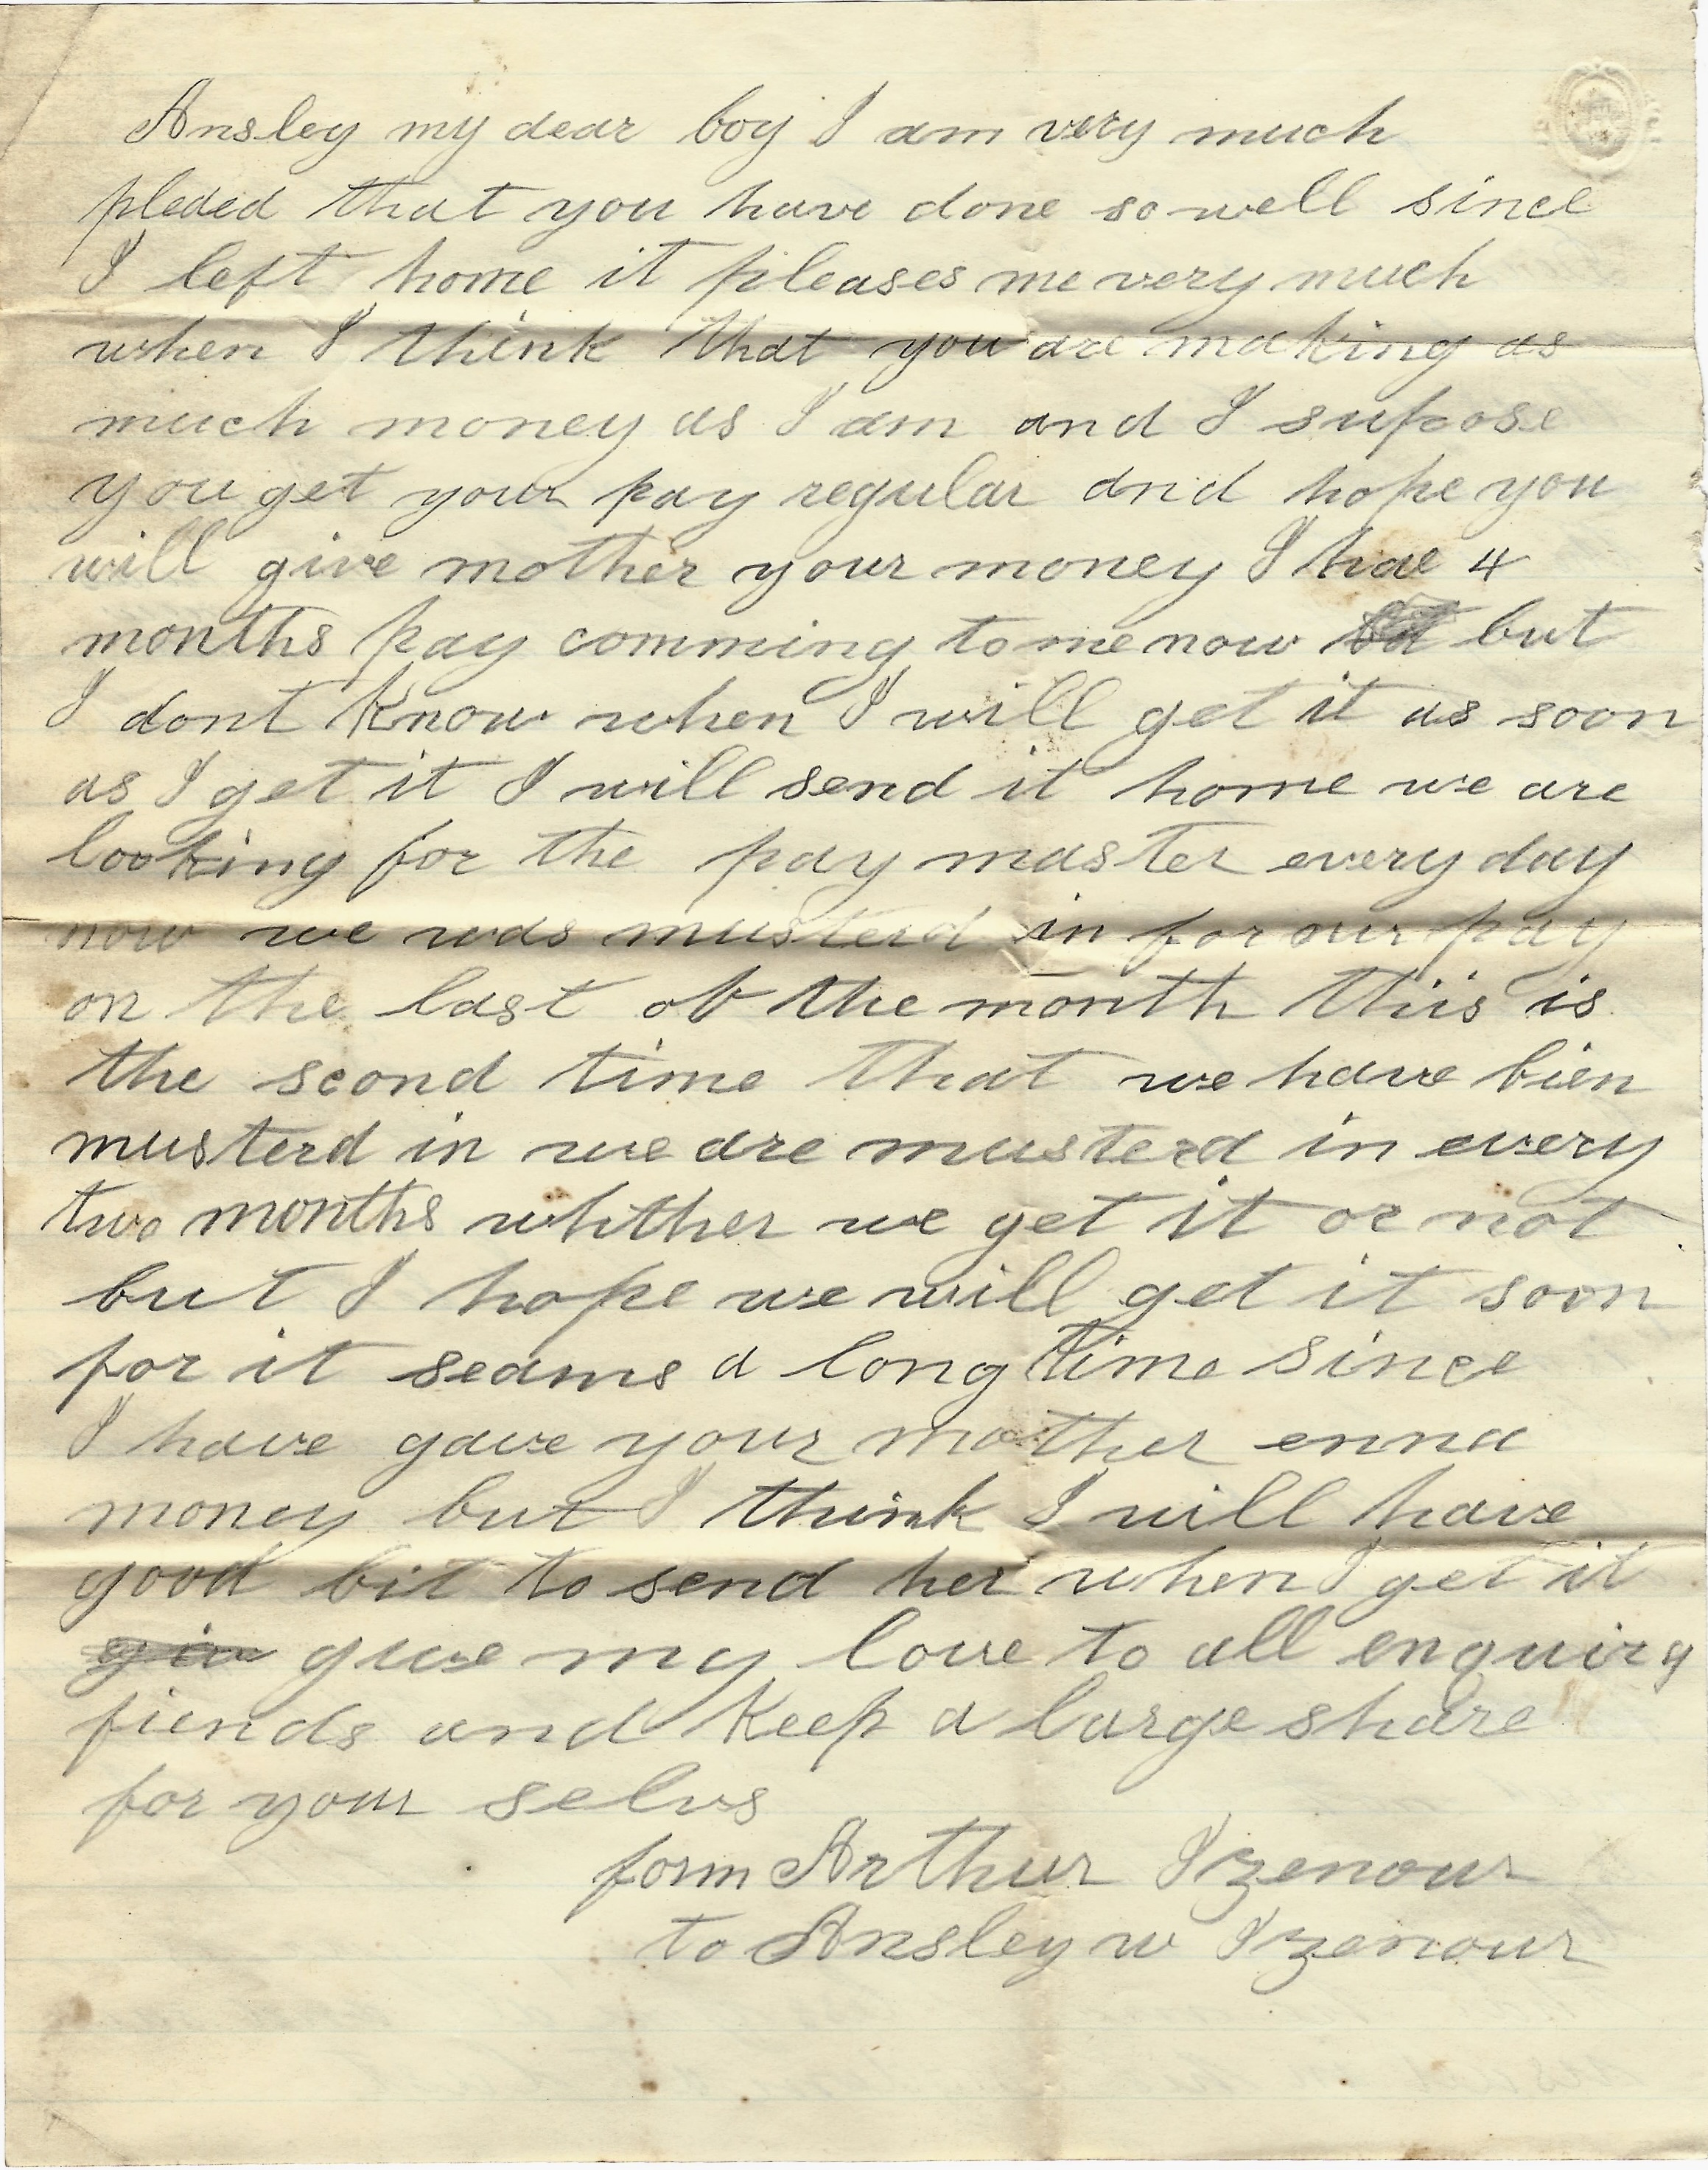 Ansley my dear boy I am very much
pleded that you have done so well since
I left home it pleases me very much
when I think that you are making as
much money as I am and I supose
you get your pay regular and hope you
will give mother your money I hae 4
months pay comming to me now but
I dont Know when I will get it as soon
as I get it I will send it home we are
looking for the pay master every day
now we was musterd in for our pay
on the last of the month this is
the scond time that we have bien
musterd in we are musterd in every
two months whither we get it or not
but I hope we will get it soon
for it seams a long time since
I have gave your mother enna
money but I think I will have
good bit to send her when I get it
giv give my love to all enquiry
fiends and Keep a large share
for your selvs
form Arthur Izenour
to Ansley w Izenour